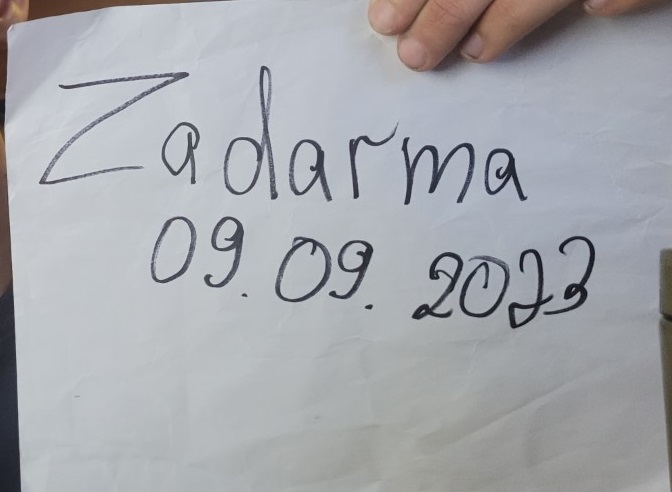 Zadarma
09.09.2023